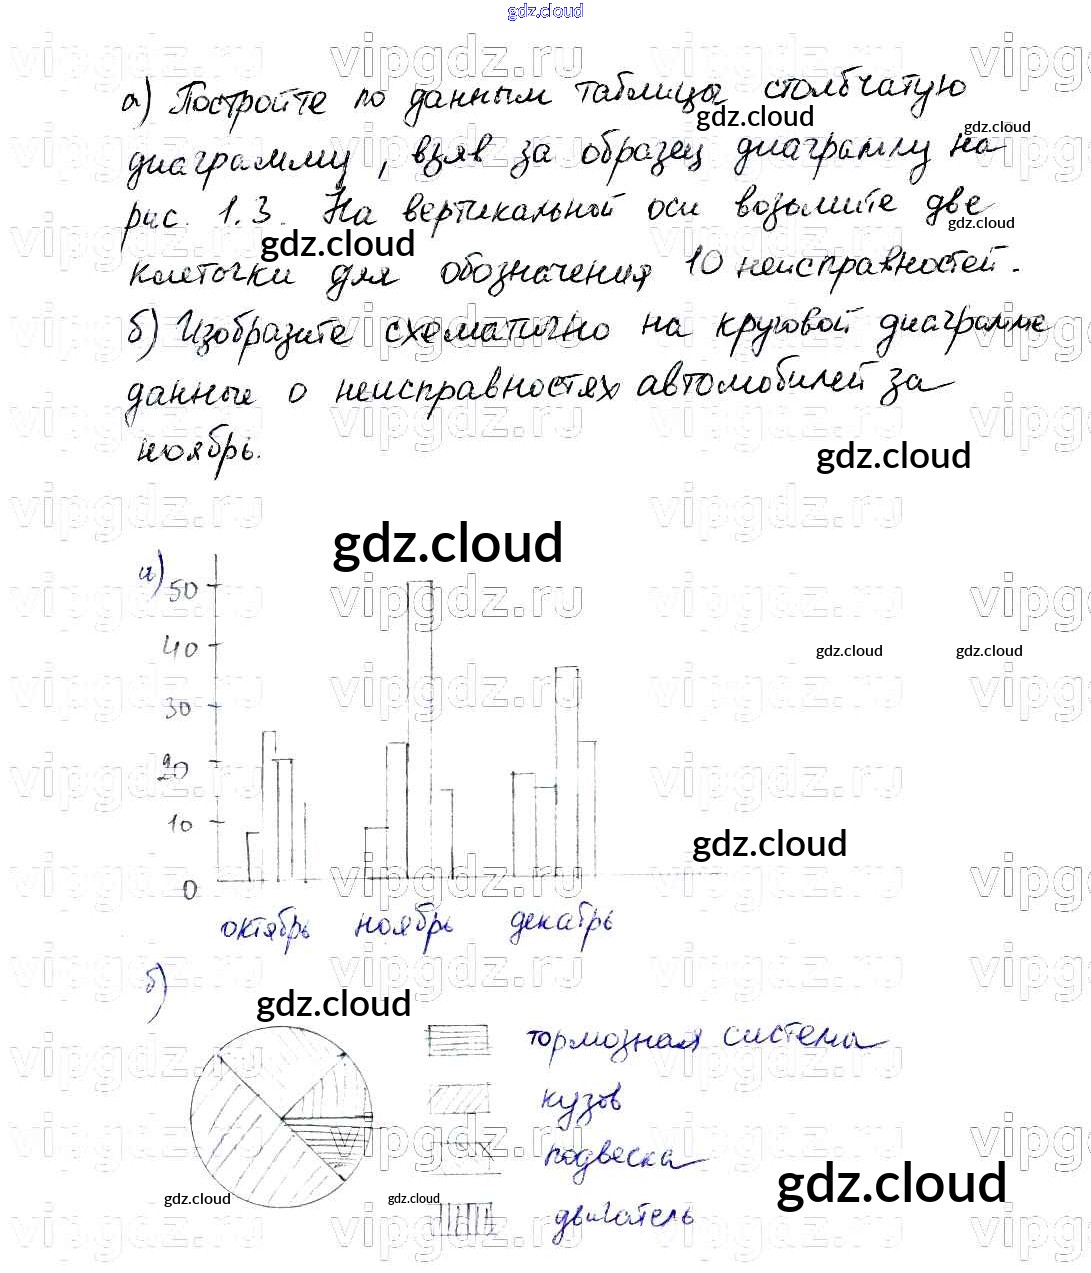 gdz.cloud
а) Постройте по данным таблицы столбчатую
gdz.cloud gdz.cloud
диаграмму, взяв за образец диаграмму на
рис. 1.3. На вертикальной оси возьмите две
gdz.cloud gdz.cloud
клеточки для обозначения 10 неисправностей.
б) Изобразите схематично на круговой диаграмме
данные о неисправностях автомобилей за
ноябрь.
gdz.cloud
gdz.cloud
а)
50
40
gdz.cloud gdz.cloud
30
20
10
gdz.cloud
0
октябрь ноябрь декабрь
б)
gdz.cloud
тормозная система
кузов
подвеска
gdz.cloud
gdz.cloud gdz.cloud
двигатель
vipgdz.ru